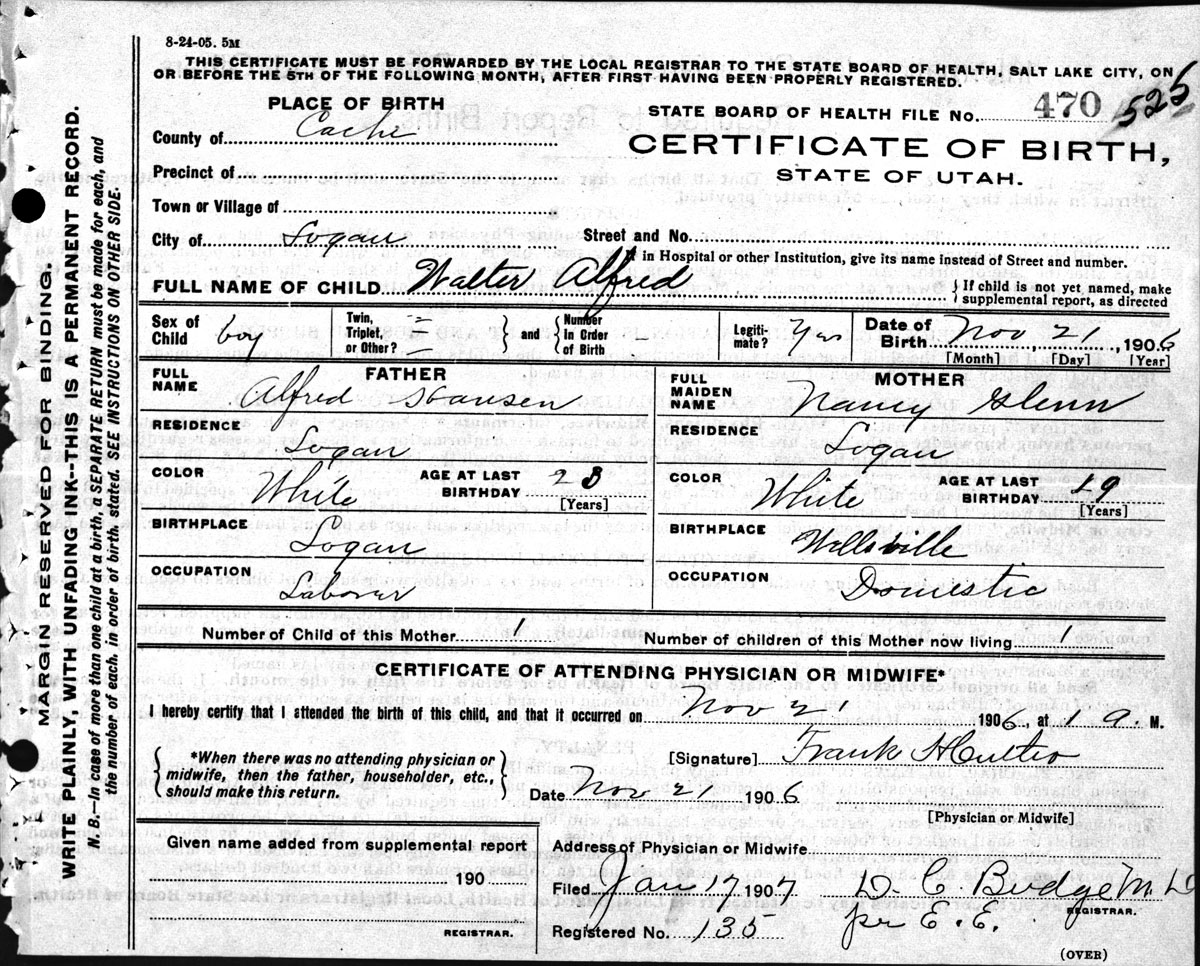 8-24-05. 5M
THIS CERTIFICATE MUST BE FORWARDED BY THE LOCAL REGISTRAR TO THE STATE BOARD OF HEALTH, SALT LAKE CITY, ON
OR BEFORE THE 5TH OF THE FOLLOWING MONTH, AFTER FIRST HAVING BEEN PROPERLY REGISTERED.
PLACE OF BIRTH
County of Cache
Precinct of
Town or Village of
City of Logan
STATE BOARD OF HEALTH FILE No. 470 525
CERTIFICATE OF BIRTH,
STATE OF UTAH.
Street and No.
If in Hospital or other Institution, give its name instead of Street and number.
FULL NAME OF CHILD Walter Alfred
If child is not yet named, make
supplemental report, as directed
Sex of Child boy
Twin, Triplet, or Other? and Number In Order of Birth
Legitimate? Yes
Date of Birth Nov 21, 1906
[Month] [Day] [Year]
FATHER
FULL NAME Alfred Hansen
RESIDENCE Logan
COLOR White AGE AT LAST BIRTHDAY 23
[Years]
BIRTHPLACE Logan
OCCUPATION Laborer
MOTHER
FULL MAIDEN NAME Nancy Glenn
RESIDENCE Logan
COLOR White AGE AT LAST BIRTHDAY 19
[Years]
BIRTHPLACE Wellsville
OCCUPATION Domestic
Number of Child of this Mother 1 Number of children of this Mother now living 1
CERTIFICATE OF ATTENDING PHYSICIAN OR MIDWIFE*
I hereby certify that I attended the birth of this child, and that it occurred on Nov 21 1906, at 1 a. M.
*When there was no attending physician or
midwife, then the father, householder, etc.,
should make this return.
[Signature] Frank
Date Nov 21 1906
[Physician or Midwife]
Given name added from supplemental report
190
REGISTRAR.
Address of Physician or Midwife
Filed Jan 17 1907 D. C. Budge M.D
REGISTRAR.
Registered No. 135 per E. E.
(OVER)
MARGIN RESERVED FOR BINDING.
WRITE PLAINLY, WITH UNFADING INK--THIS IS A PERMANENT RECORD.
N. B.--In case of more than one child at birth, a SEPARATE RETURN must be made for each and
the number of each, in order of birth, stated. SEE INSTRUCTIONS ON OTHER SIDE.